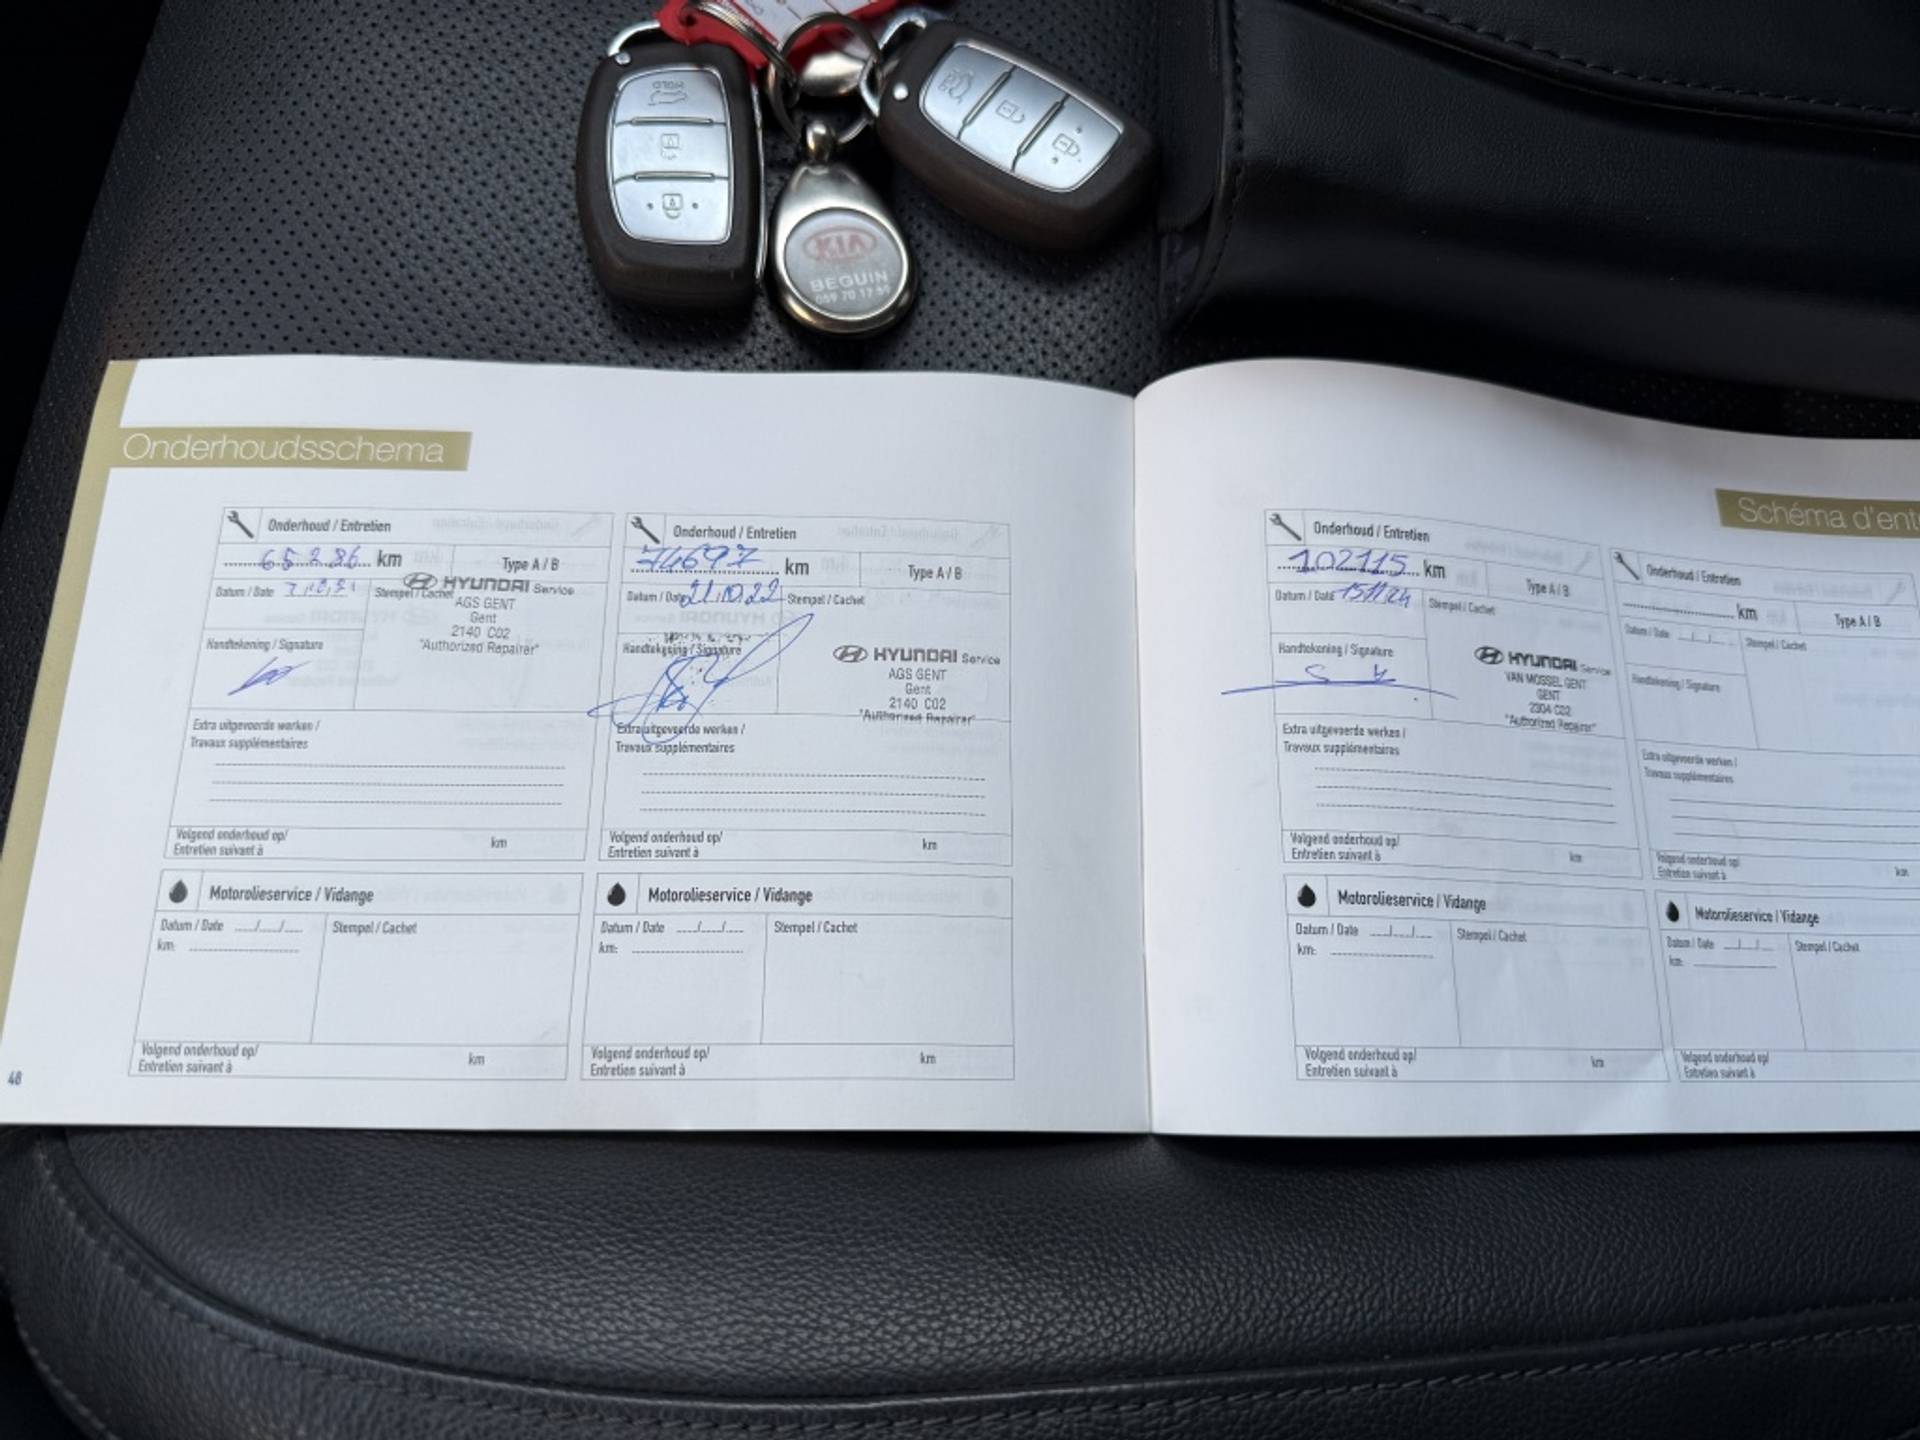 HOLD
KIA
BEGUIN
059 70 17 59
Onderhoudsschema
Onderhoud / Entretien
65286 km
Type A / B
Datum / Date
Stempel / Cachet
HYUNDAI Service
AGS GENT
Gent
2140 C02
"Authorized Repairer"
Handtekening / Signature
Extra uitgevoerde werken /
Travaux supplémentaires
Volgend onderhoud op/
Entretien suivant à
km
Motorolieservice / Vidange
Datum / Date
Stempel / Cachet
km:
Volgend onderhoud op/
Entretien suivant à
km
48
Onderhoud / Entretien
74697 km
Type A / B
Datum / Date 21/10/22
Stempel / Cachet
Handtekening / Signature
HYUNDAI Service
AGS GENT
Gent
2140 C02
"Authorized Repairer"
Extra uitgevoerde werken /
Travaux supplémentaires
Volgend onderhoud op/
Entretien suivant à
km
Motorolieservice / Vidange
Datum / Date
Stempel / Cachet
km:
Volgend onderhoud op/
Entretien suivant à
km
Schéma d'ent
Onderhoud / Entretien
102115 km
Type A / B
Datum / Date
Stempel / Cachet
Handtekening / Signature
HYUNDAI Service
VAN MOSSEL GENT
GENT
2304 C02
"Authorized Repairer"
Extra uitgevoerde werken /
Travaux supplémentaires
Volgend onderhoud op/
Entretien suivant à
km
Motorolieservice / Vidange
Datum / Date
Stempel / Cachet
km:
Volgend onderhoud op/
Entretien suivant à
km
Onderhoud / Entretien
km
Type A / B
Datum / Date
Stempel / Cachet
Handtekening / Signature
Extra uitgevoerde werken /
Travaux supplémentaires
Volgend onderhoud op/
Entretien suivant à
km
Motorolieservice / Vidange
Datum / Date
Stempel / Cachet
km:
Volgend onderhoud op/
Entretien suivant à